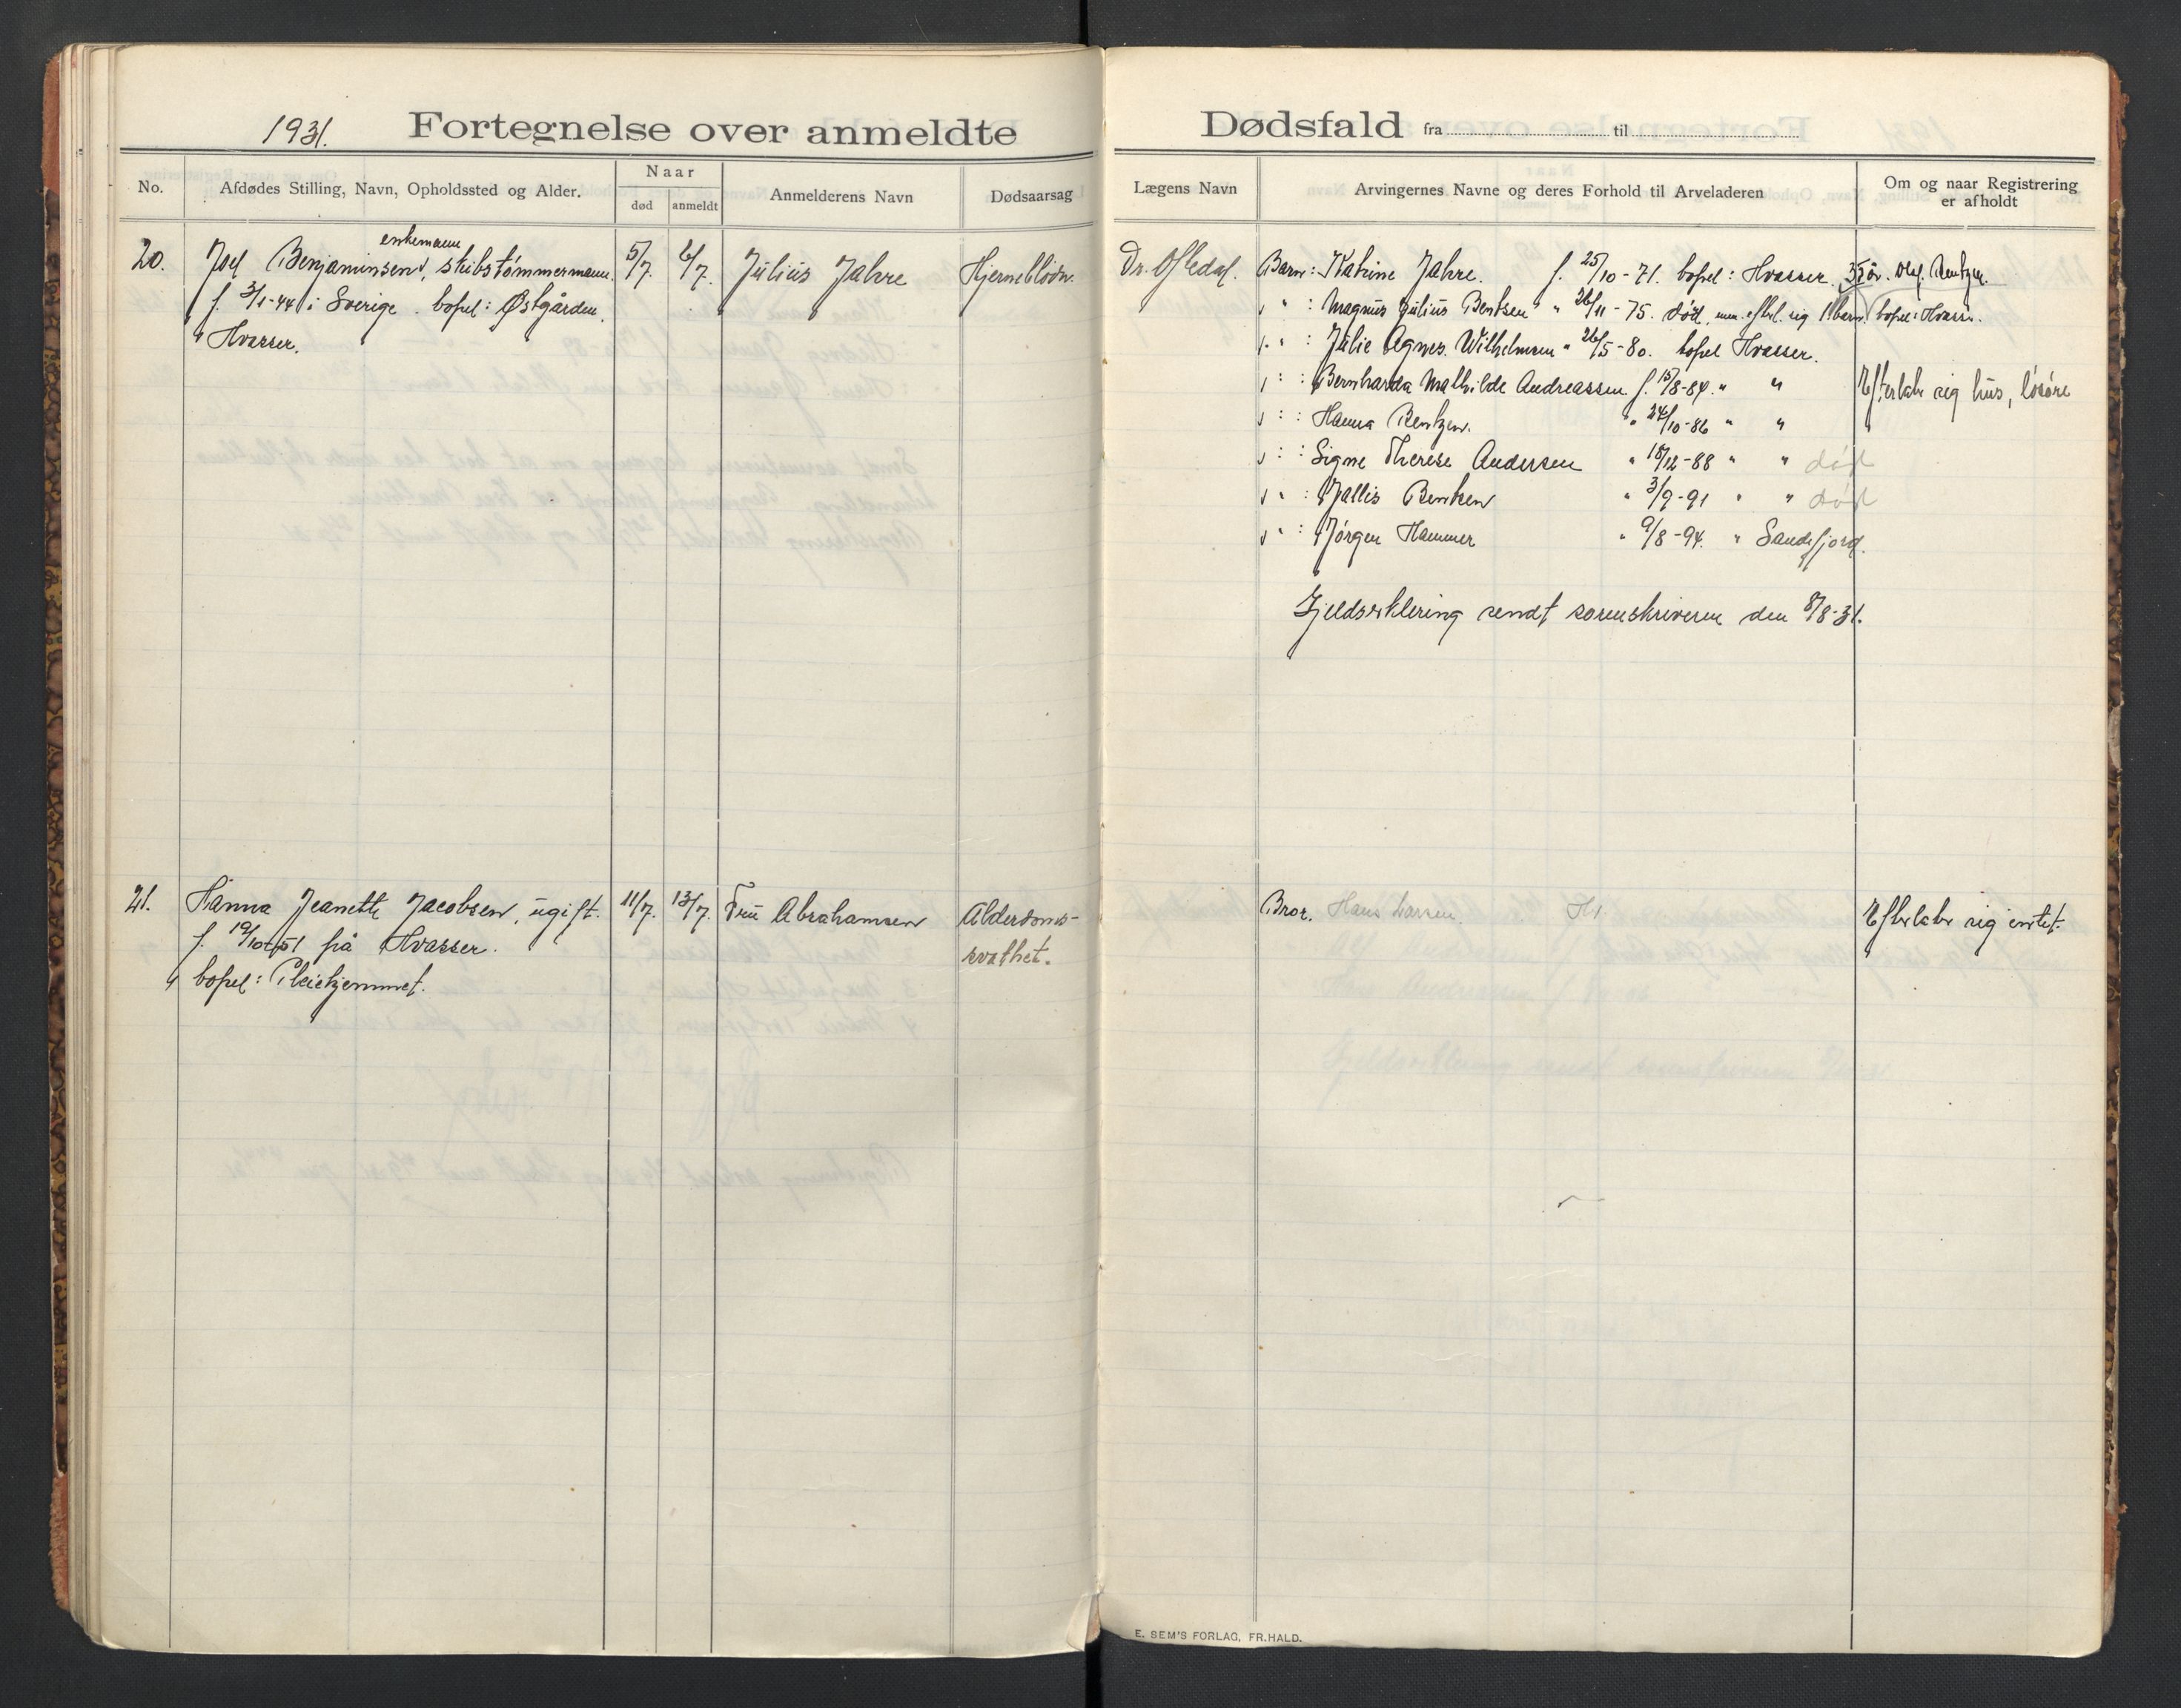 1931.
Fortegnelse over anmeldte
No.
Afdødes Stilling, Navn, Opholdssted og Alder.
Naar
død
anmeldt
Anmelderens Navn
Dødsaarsag
20.
enkemann
Joel Benjaminsen, skibstømmermann.
f. 3/1-44 i Sverige. bopel: Østgården,
Hvasser.
5/7.
6/7.
Julius Jahre
Hjerneblødn.
21.
Hanna Jeanette Jacobsen, ugift.
f. 19/10-51 på Hvasser.
bopel: Pleiehjemmet.
11/7.
13/7.
Fru Abrahamsen
Alderdoms-
svakhet.
Dødsfald fra til
Lægens Navn
Arvingernes Navne og deres Forhold til Arveladeren
Om og naar Registrering
er afholdt
Dr. Oftedal.
Barn: Katrine Jahre. f. 25/10-71. bopel: Hvasser.
35 år. Olaf Bentzen.
" : Magnus Julius Bentsen " 26/11-75. død, men efterl. sig 1 barn. bopel: Hvasser.
" : Julie Agnes Wilhelmsen " 26/5-80. bopel Hvasser.
" : Bernharda Mathilde Andreassen f. 15/8-84. " "
Efterlater sig hus, løsøre
" : Hanna Bentzen. " 24/10-86 " "
" : Signe Therese Andersen " 18/12-88 " " død
" : Jallis Bentsen " 3/9-91 " " død
" : Jørgen Hammer " 9/8-94. " Sandefjord.
Gjeldserklering sendt sorenskriveren den 8/8-31.
Bror. Hans Larsen.
Efterlater sig intet.
E. SEM'S FORLAG, FR.HALD.